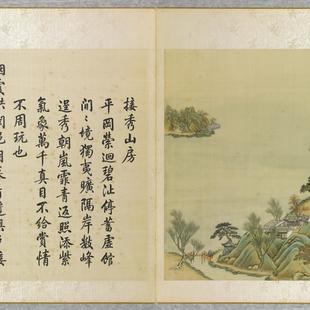 接秀山房
平岡縈迴碧沚停蓄虛館
閒〻境獨夷曠隔岸數峰
逞秀朝嵐霏青返照添紫
氣象萬千真目不給賞情
不周玩也